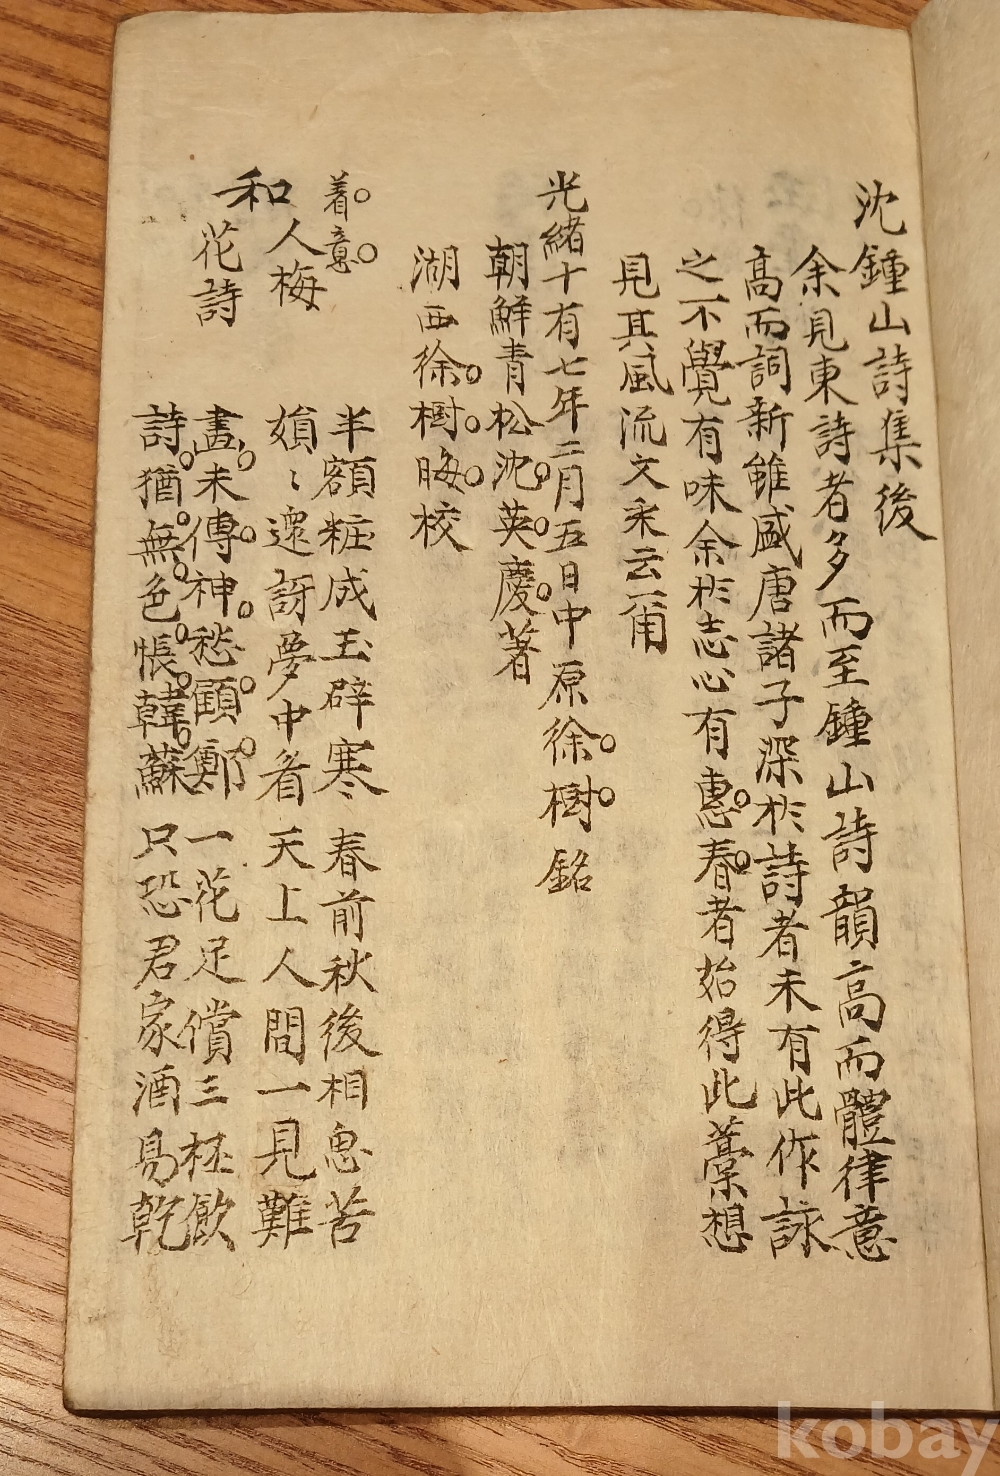 沈鍾山詩集後
余見東詩者多而至鍾山詩韻高而體律意
高而詞新雖盛唐諸子深於詩者未有此作詠
之不覺有味余於志心有惠春者始得此藁想
見其風流文采云爾
光緖十有七年二月五日中原徐樹銘
朝鮮青松沈英慶著
湖西徐樹晦校
着意
和人梅
花詩
半額粧成玉辟寒 春前秋後相思苦
嬪〻還訝夢中看 天上人間一見難
畵未傳神愁顧鄭 一花足償三杯飮
詩猶無色悵韓蘇 只恐君家酒易乾
kobay